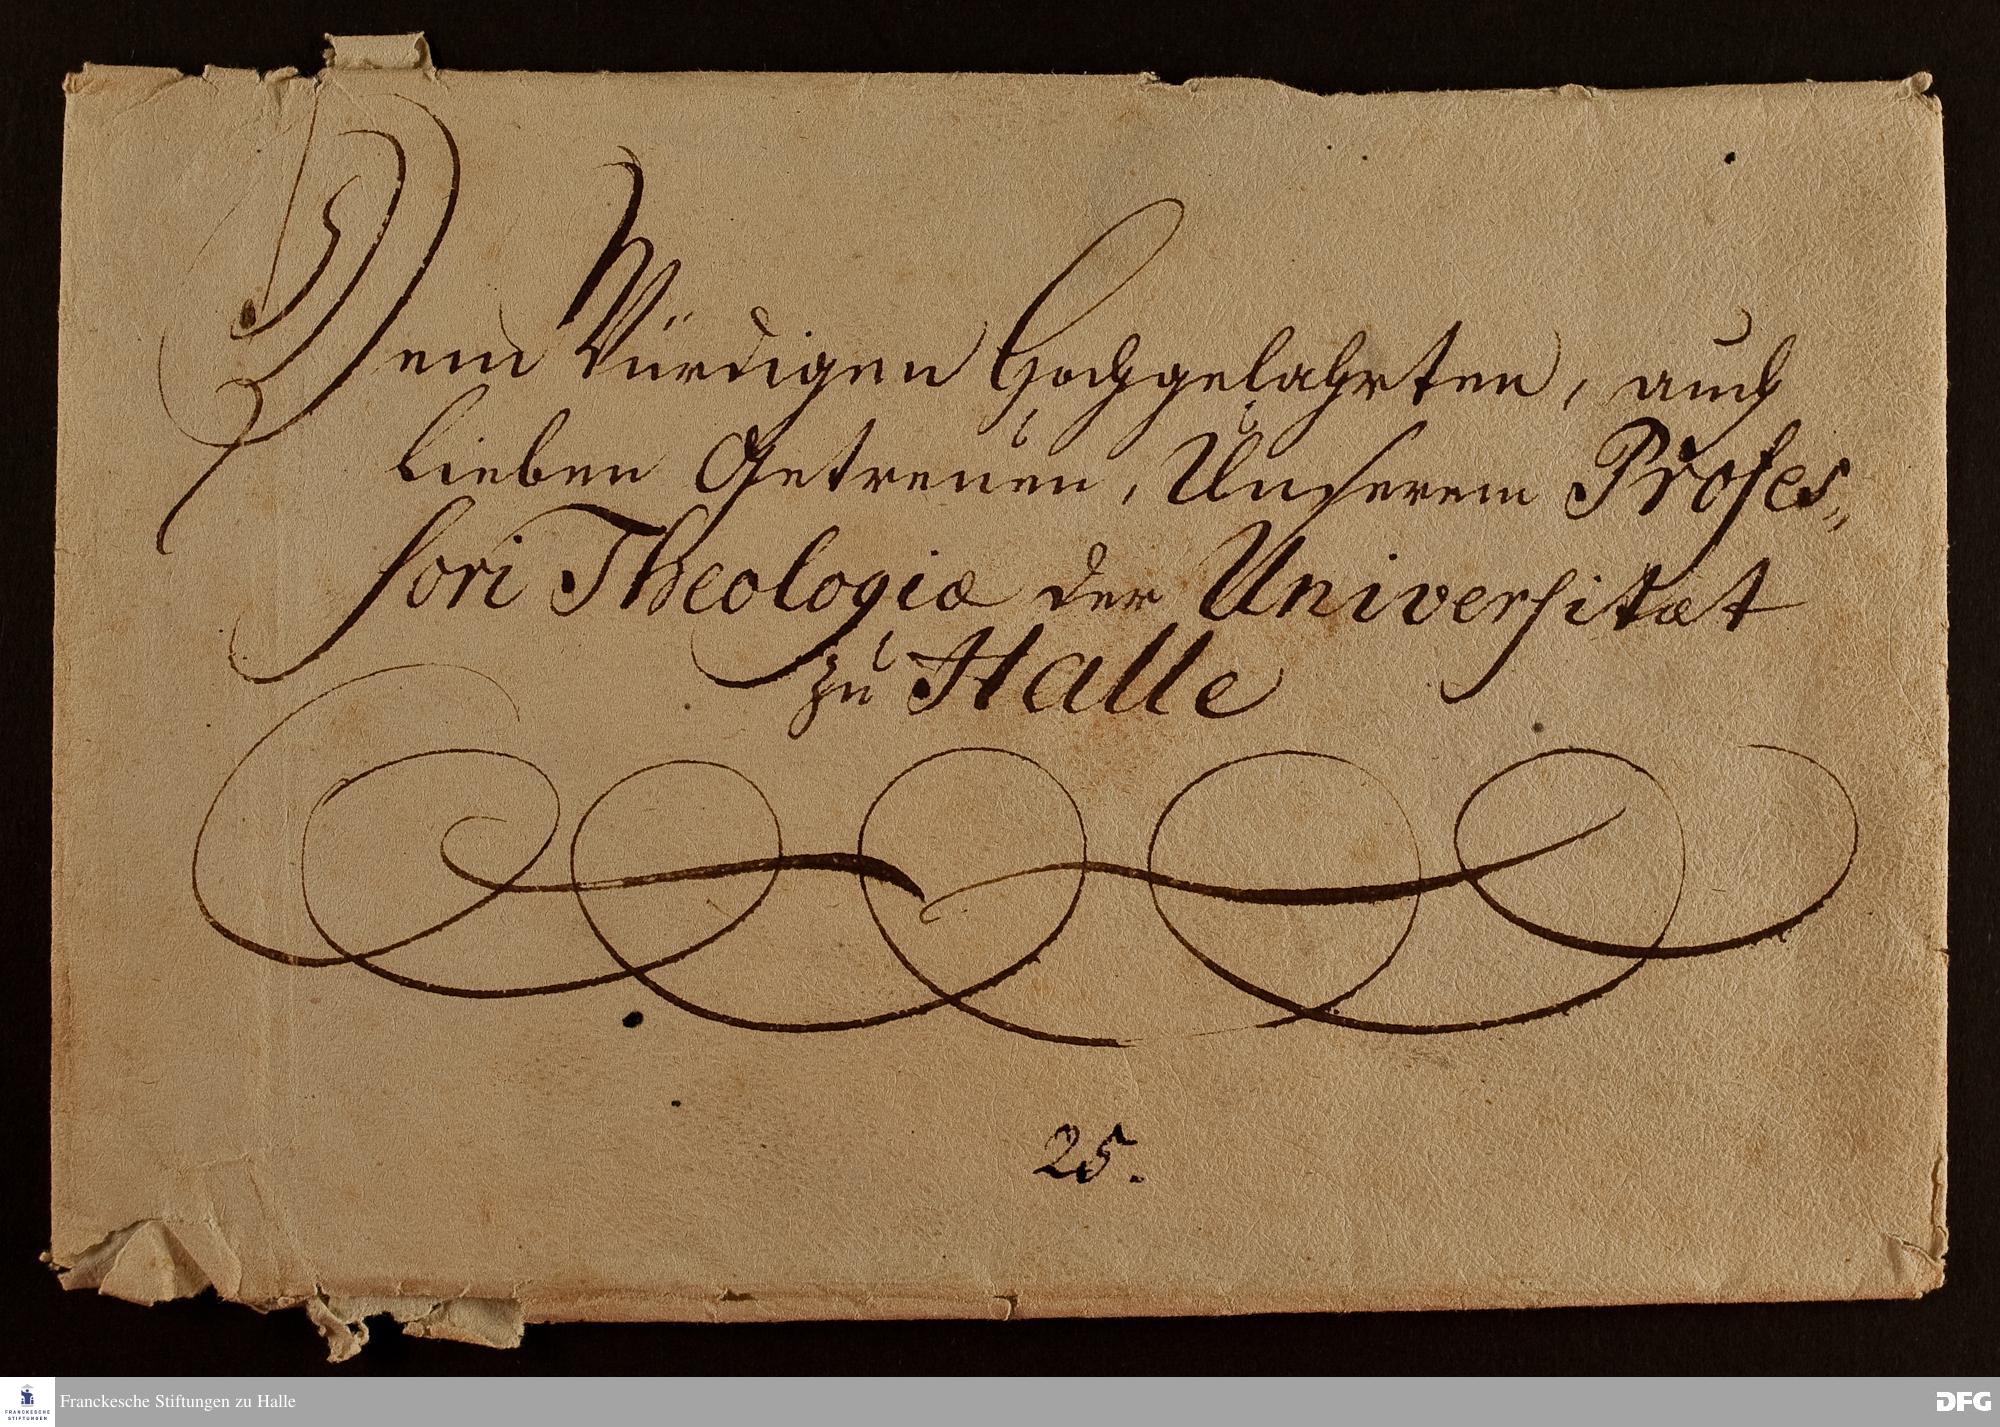 Dem Würdigen Hochgelahrten, auch
lieben Getreuen, Unserem Profes„
sori Theologiæ der Universitæt
zu Halle
25.
FRANCKESCHE
STIFTUNGEN
Franckesche Stiftungen zu Halle
DFG